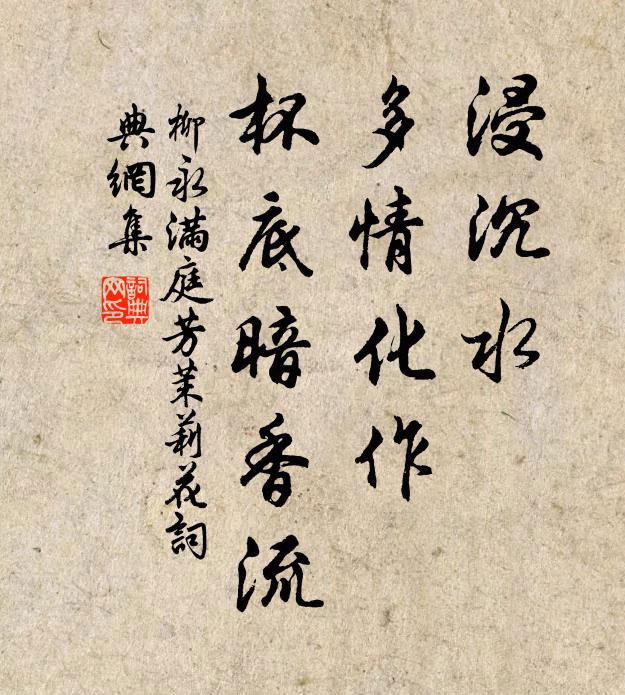 浸沉水
多情化作
杯底暗香流
柳永滿庭芳茉莉花詞
典網集
詞典
网印